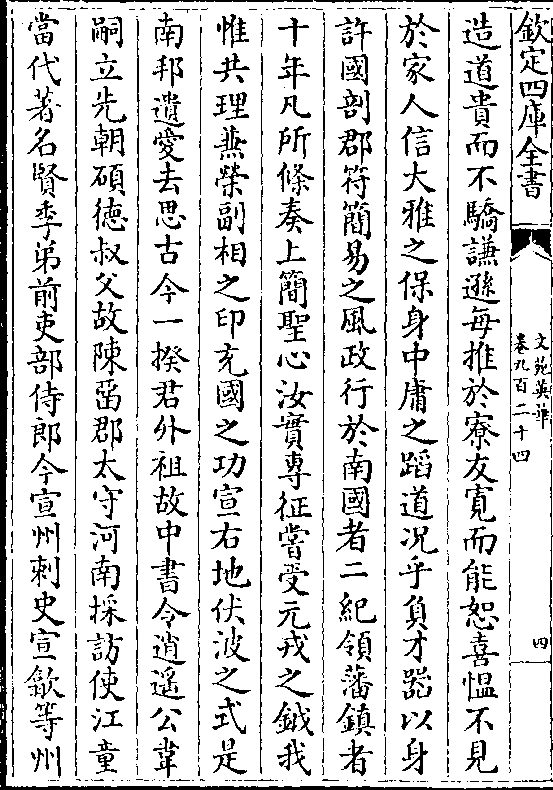 欽定四庫全書
文苑英華
卷九百二十四
四
造道貴而不驕謙遜每推於寮友寛而能恕喜愠不見
於家人信大雅之保身中庸之蹈道况乎負才噐以身
許國剖郡符簡易之風政行於南國者二紀領藩鎮者
十年凡所條奏上簡聖心汝實専征嘗受元戎之鉞我
惟共理兼榮副相之印充國之功宣右地伏波之式是
南邦遺愛去思古今一揆君外祖故中書令逍遥公韋
嗣立先朝碩徳叔父故陳畱郡太守河南採訪使江童
當代著名賢季弟前吏部侍郎今宣州刺史宣歙等州